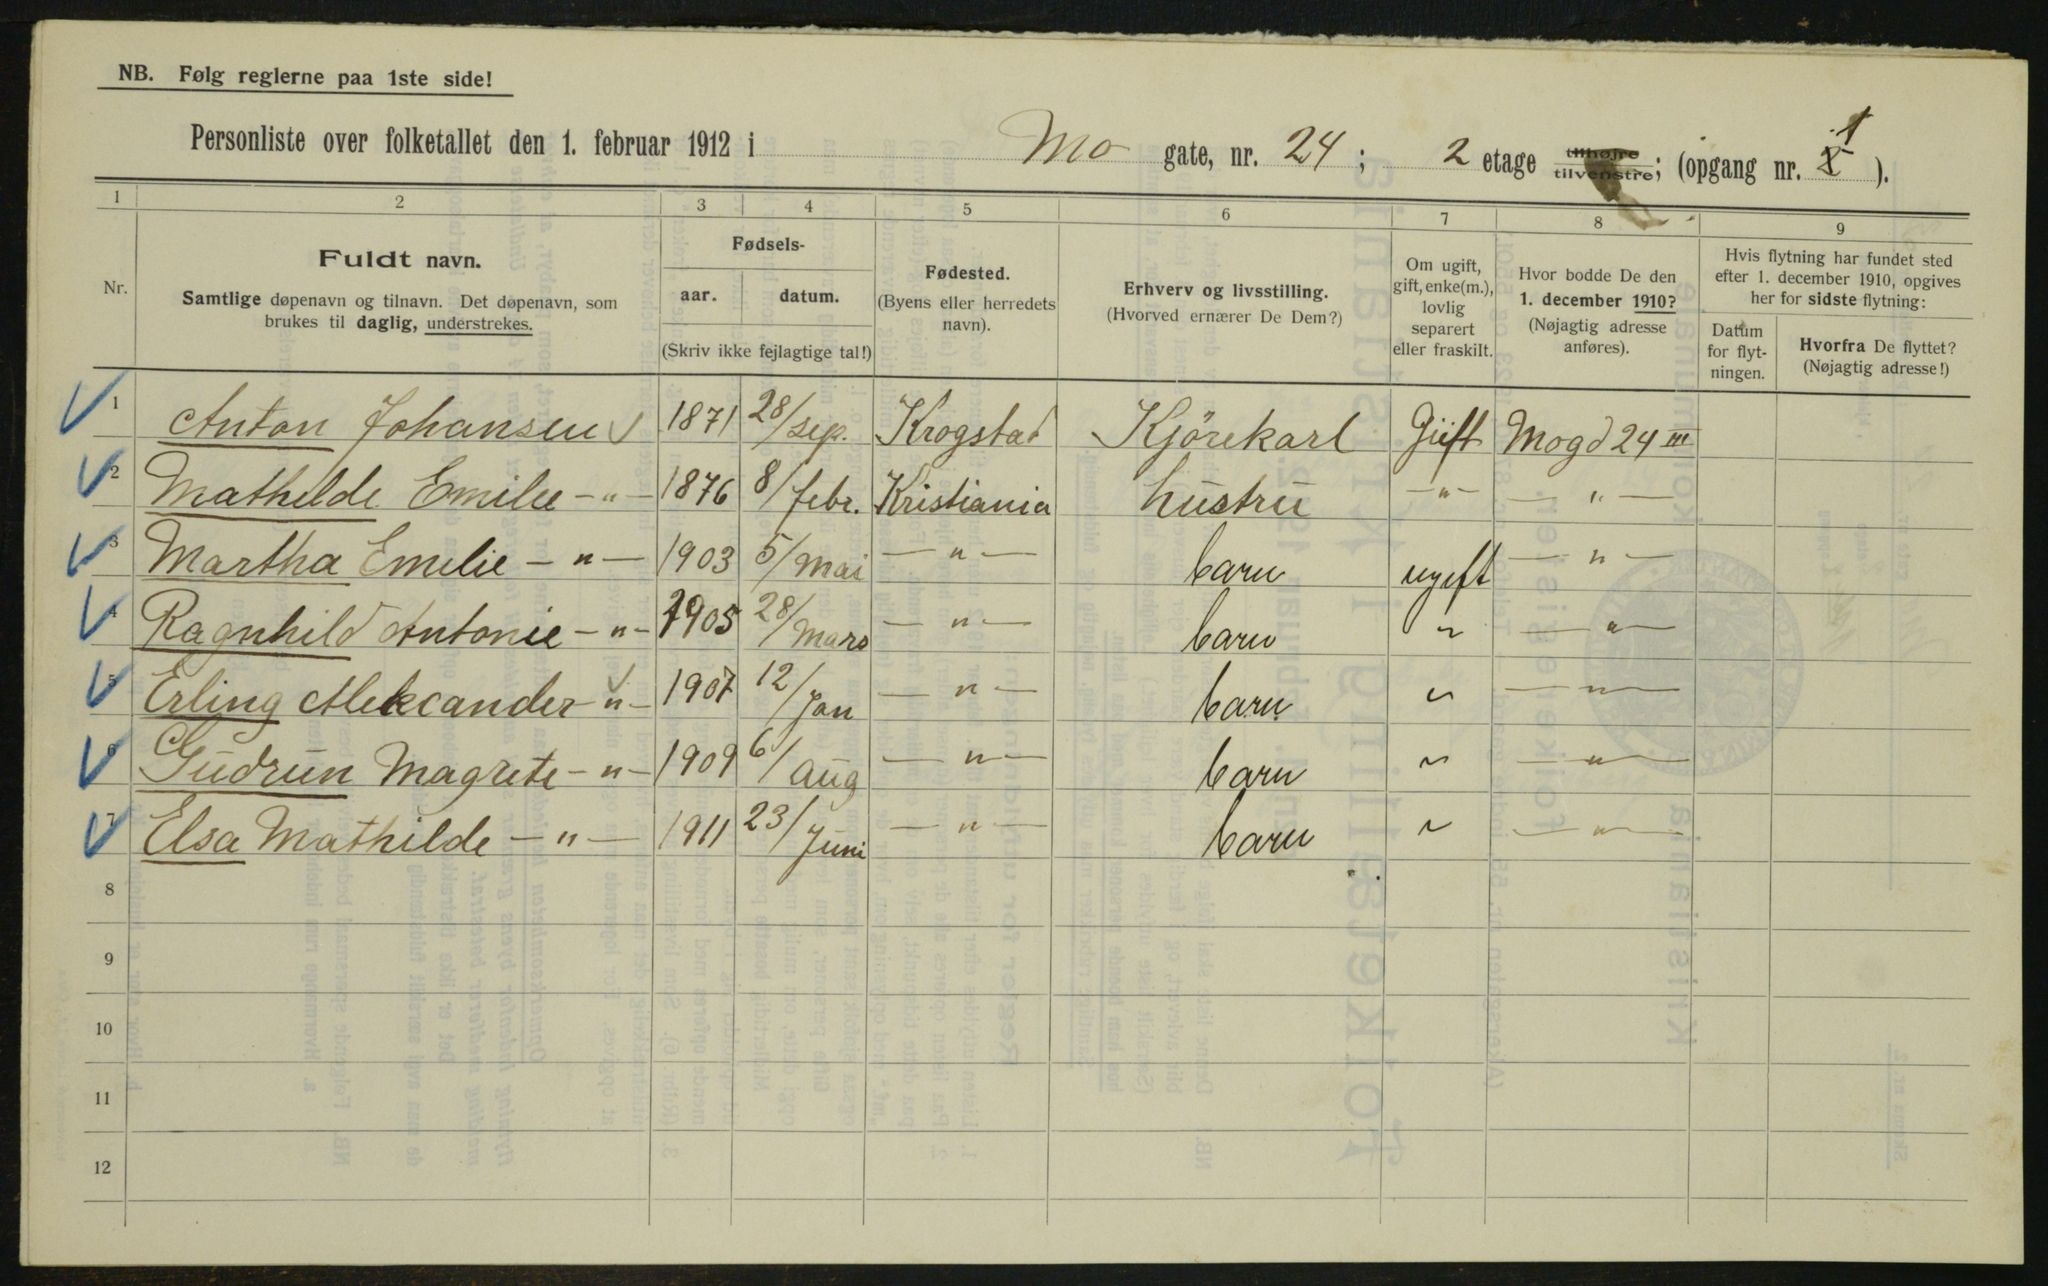 NB. Følg reglerne paa 1ste side!
Personliste over folketallet den 1. februar 1912 i Mo gate, nr. 24 ; 2 etage tilhøjre tilvenstre; (opgang nr. 1 ).
1 2 3 4 5 6 7 8 9
Nr.
Fuldt navn.
Samtlige døpenavn og tilnavn. Det døpenavn, som
brukes til daglig, understrekes.
Fødsels-
aar. datum.
(Skriv ikke fejlagtige tal!)
Fødested.
(Byens eller herredets
navn).
Erhverv og livsstilling.
(Hvorved ernærer De Dem?)
Om ugift,
gift, enke(m.),
lovlig
separert
eller fraskilt.
Hvor bodde De den
1. december 1910?
(Nøjagtig adresse
anføres).
Hvis flytning har fundet sted
efter 1. december 1910, opgives
her for sidste flytning:
Datum
for flyt-
ningen.
Hvorfra De flyttet?
(Nøjagtig adresse!)
1 Anton Johansen 1871 28/sep. Krogstad Kjörekarl Gift Mogd 24 III
2 Mathilde Emilie – " – 1876 8/febr. Kristiania hustru – " – – " –
3 Martha Emilie – " – 1903 5/mai – " – barn ugift – " –
4 Ragnhild Antonie – " – 1905 28/mars – " – barn " – " –
5 Erling Alekcander – " – 1907 12/Jan – " – barn " – " –
6 Gudrun Magrete – " – 1909 6/aug – " – barn " – " –
7 Elsa Mathilde – " – 1911 23/Juni – " – barn " – " –
8
9
10
11
12